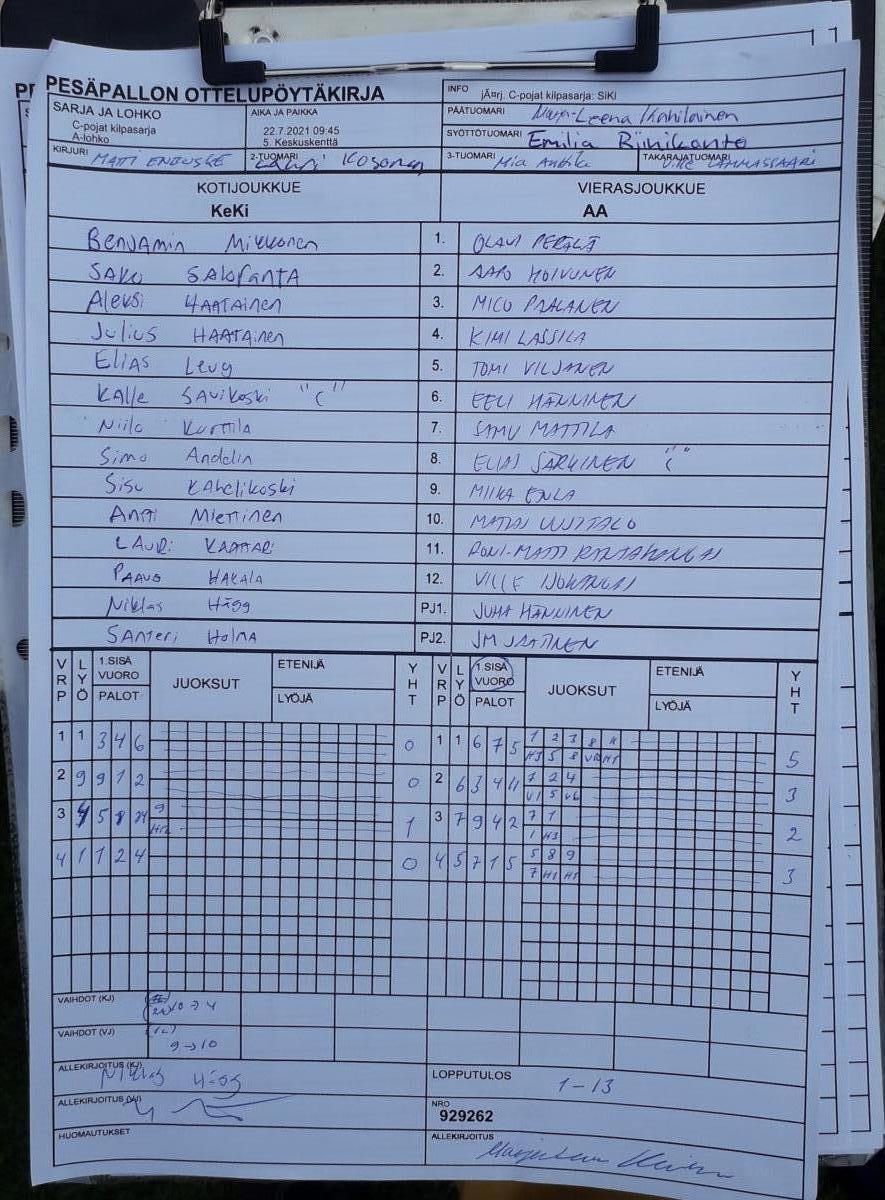 PESÄPALLON OTTELUPÖYTÄKIRJA
INFO jÃ¤rj. C-pojat kilpasarja: SiKi
SARJA JA LOHKO
C-pojat kilpasarja
A-lohko
AIKA JA PAIKKA
22.7.2021 09:45
5. Keskuskenttä
PÄÄTUOMARI
SYÖTTÖTUOMARI Emilia
KIRJURI MATTI
2-TUOMARI Kosonen
3-TUOMARI Mia Anttila
TAKARAJATUOMARI VILLE LAMMASSAARI
KOTIJOUKKUE
KeKi
VIERASJOUKKUE
AA
Benjamin Mikkonen 1. OLAVI PERÄLÄ
SAKU SALORANTA 2. AAPO KOIVUNEN
Aleksi HAATAINEN 3. MICO PAALANEN
Julius HAATAINEN 4. KIMI LASSILA
Elias Leug 5. TOMI VILJANEN
KALLE SAVIKOSKI "C" 6. EELI HÄNNINEN
Niilo Kurttila 7. SAMU MATTILA
Simo Andelin 8. ELIAS SÄRKINEN "C"
Sisu Kahelikoski 9. MIIKA ENLA
Antti Miettinen 10. UUSITALO
LAURI KAATTARI 11. RONI-MATTI RINTAKANGAS
PAAVO HAKALA 12. VILLE ISOKANGAS
Niklas Hägg PJ1. JUHA HÄNNINEN
SANTERI HOLMA PJ2. JM JAATINEN
VRP LYÖ 1.SISÄ VUORO PALOT JUOKSUT ETENIJÄ LYÖJÄ YHT VRP LYÖ 1.SISÄ VUORO PALOT JUOKSUT ETENIJÄ LYÖJÄ YHT
1 1 3 4 6 0 1 1 6 7 5 1 2 3 8 11 5
2 9 9 1 2 0 2 6 3 4 11 1 2 4 3
3 4 5 8 9 1 3 7 9 4 2 7 1 2
1 H3
4 1 1 2 4 0 4 5 7 1 5 5 8 9 3
7 H1 H1
VAIHDOT (KJ) 10 → 4
VAIHDOT (VJ) 9 → 10
ALLEKIRJOITUS (KJ) Niklas Hägg
LOPPUTULOS 1 - 13
ALLEKIRJOITUS (VJ)
NRO
929262
HUOMAUTUKSET
ALLEKIRJOITUS